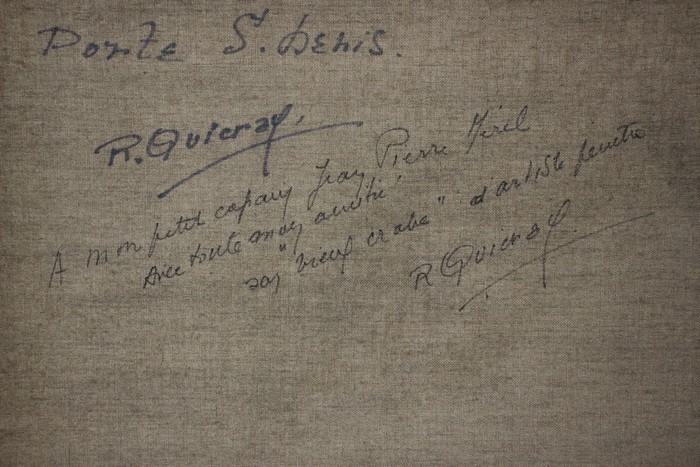 Porte St. Denis.
R. Quicray.
A mon petit copain Jean Pierre
Avec toute mon amitié
son "vieux crabe" d'artiste peintre
R Quicray.